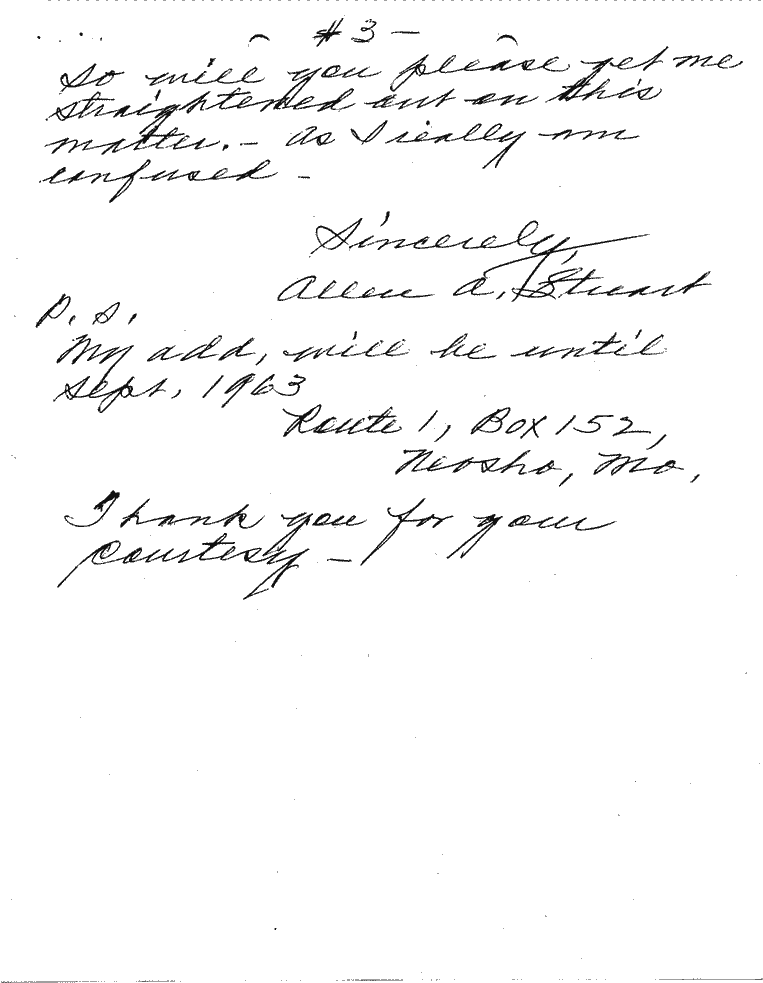 #3 -
So will you please get me
straightened out on this
matter. - As I really am
confused -
Sincerely,
Allen A. Stuart
P. S.
My add, will be until
Sept, 1963
Route 1, Box 152,
Neosho, Mo,
Thank you for your
courtesy -